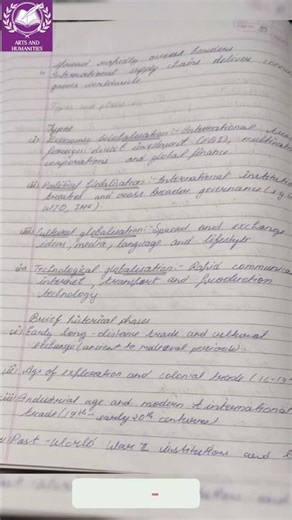 ARTS AND
HUMANITIES
spread rapidly across borders
International supply chains deliver
goods worldwide
Types
i) Economic Globalisation:- International
foreign direct investment (FDI), multinational
corporations and global finance
ii) Political globalisation:- International
treaties and cross border governance (e.g.
WTO, IMF).
iii) Cultural globalisation:- Spread and exchange
ideas, media, language and lifestyle
iv) Technological globalisation:- Rapid communic
internet, transport and production
technology
Brief historical phases
i) Early long-distance trade and cultural
exchange (ancient to medieval periods).
ii) Age of exploration and colonial trade (16-18
iii) Industrial age and modern international
trade (19th - early 20th centuries)
Post-World War II institution and